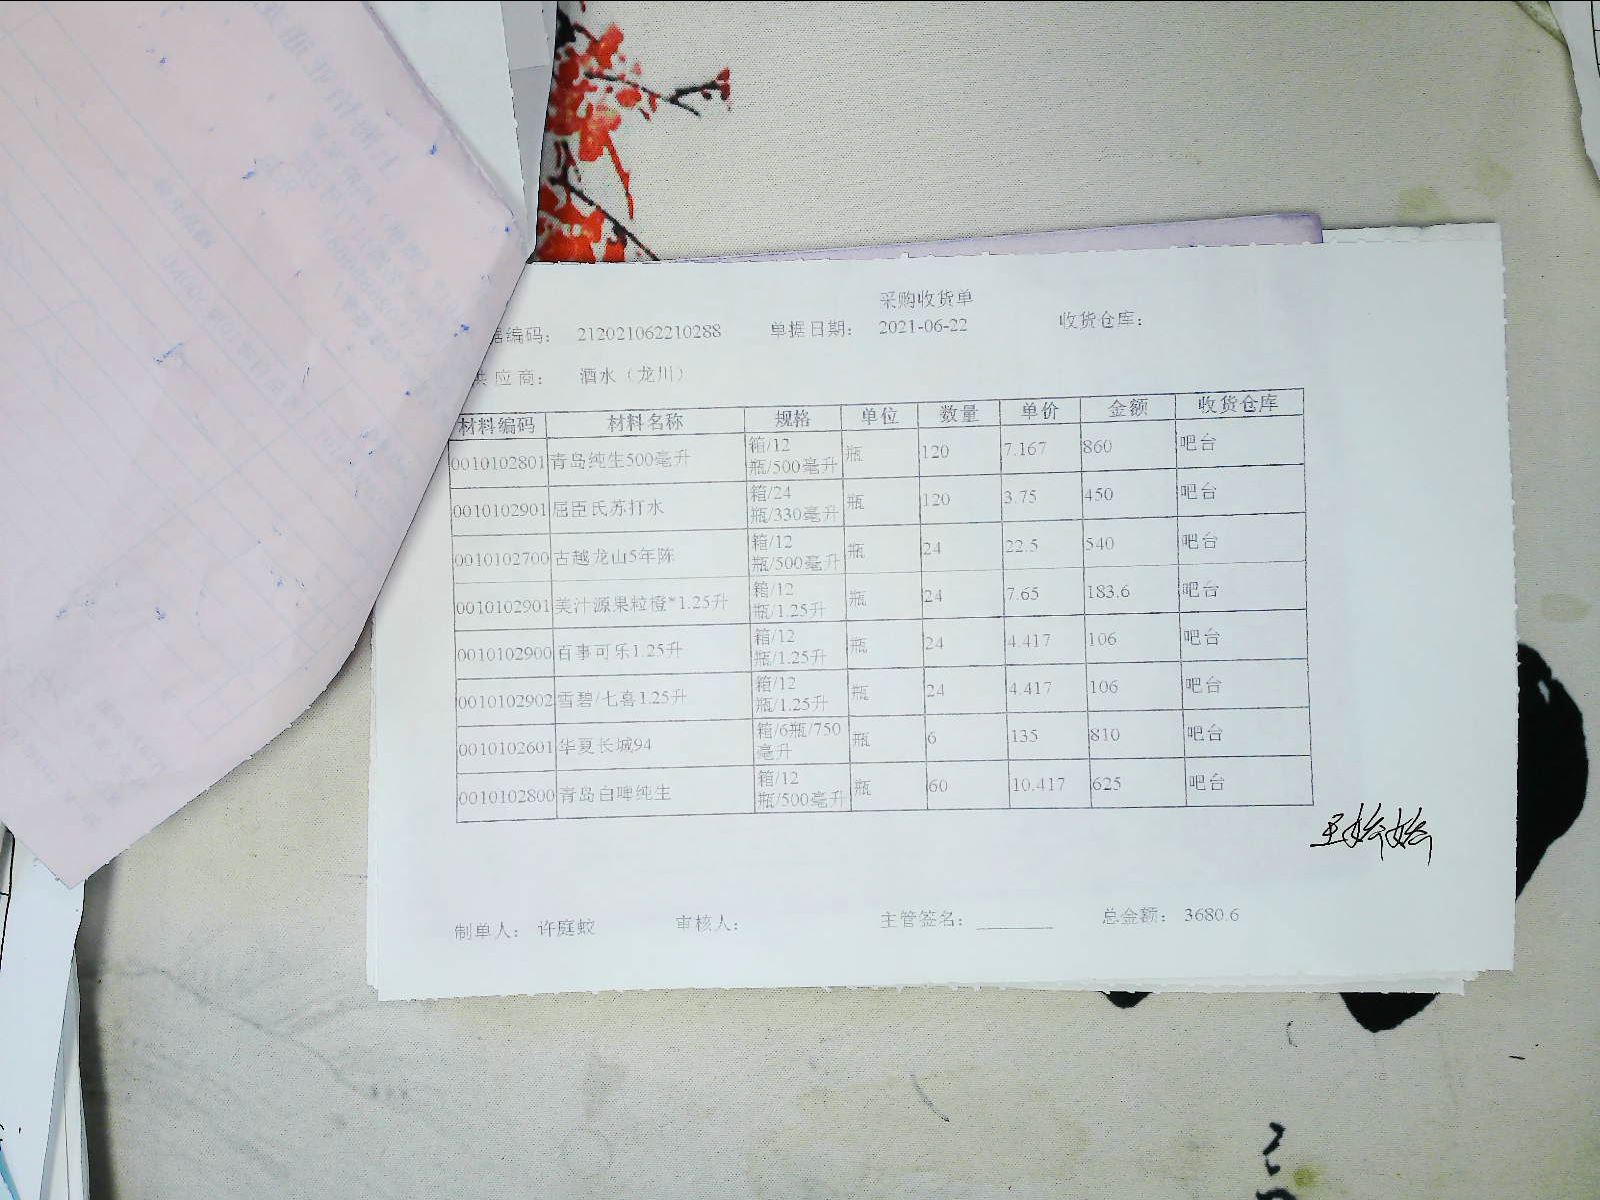 采购收货单
据编码： 212021062210288 单据日期： 2021-06-22 收货仓库：
供应商： 酒水（龙川）
材料编码 材料名称 规格 单位 数量 单价 金额 收货仓库
0010102801 青岛纯生500毫升 箱/12瓶/500毫升 瓶 120 7.167 860 吧台
0010102901 屈臣氏苏打水 箱/24瓶/330毫升 瓶 120 3.75 450 吧台
0010102700 古越龙山5年陈 箱/12瓶/500毫升 瓶 24 22.5 540 吧台
0010102901 美汁源果粒橙*1.25升 箱/12瓶/1.25升 瓶 24 7.65 183.6 吧台
0010102900 百事可乐1.25升 箱/12瓶/1.25升 瓶 24 4.417 106 吧台
0010102902 雪碧/七喜1.25升 箱/12瓶/1.25升 瓶 24 4.417 106 吧台
0010102601 华夏长城94 箱/6瓶/750毫升 瓶 6 135 810 吧台
0010102800 青岛白啤纯生 箱/12瓶/500毫升 瓶 60 10.417 625 吧台
制单人： 许庭蛟 审核人： 主管签名： 总金额： 3680.6